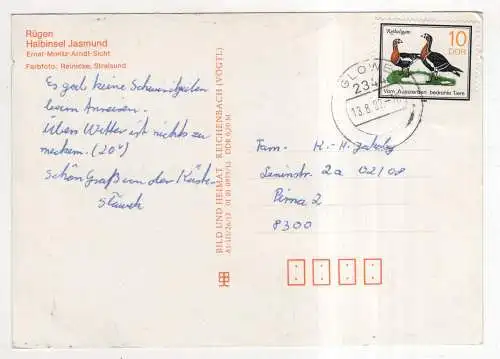 Rügen
Halbinsel Jasmund
Ernst-Moritz-Arndt-Sicht
Farbfoto: Reinicke, Stralsund
Es gab keine Schwierigkeiten
beim Anreisen.
Übers Wetter ist nichts zu
meckern. (20°)
Schön Gruß von der Küste
BILD UND HEIMAT REICHENBACH (VOGTL)
DDR 0,20 M
Rothalsgans
10
DDR
Vom Aussterben bedrohte Tiere
GLOWE
234
13.8.
Fam. K.-H.
Leninstr. 2a 02/08
Pirna 2
8300